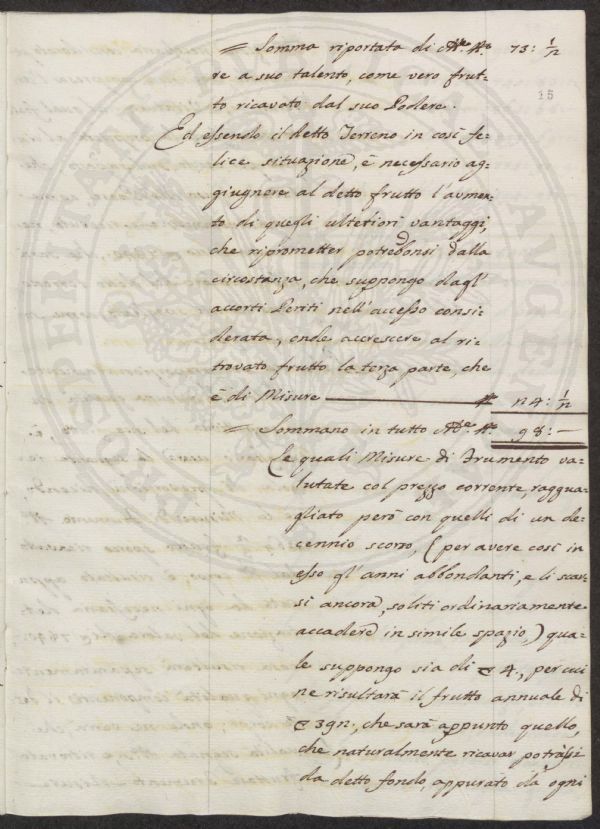 = Somma riportata di Mre N.o 73: 1/2
15
re a suo talento, come vero frut=
to ricavato dal suo Podere.
Ed essendo il detto Terreno in così fe=
lice situazione, è necessario ag=
giugnere al detto frutto l'aumen=
to di quegli ulteriori vantaggi,
che riprometter potrebbonsi dalla
circostanza, che suppongo dagl'
accorti Periti nell'accesso consi=
derata, onde accrescere al ri=
trovato frutto la terza parte, che
è di Misure N.o 24: 1/2
= Sommano in tutto Mre N.o 98: —
Le quali Misure di Frumento va=
lutate col prezzo corrente, raggua=
gliato però con quelli di un de=
cennio scorso, (per avere così in
esso gl'anni abbondanti, e li scar=
si ancora, soliti ordinariamente
accadere in simile spazio,) qua=
le suppongo sia di 4, per cui
ne risultarà il frutto annuale di
392, che sarà appunto quello,
che naturalmente ricavar potrassi
da detto fondo, appurato da ogni
PROSPERI